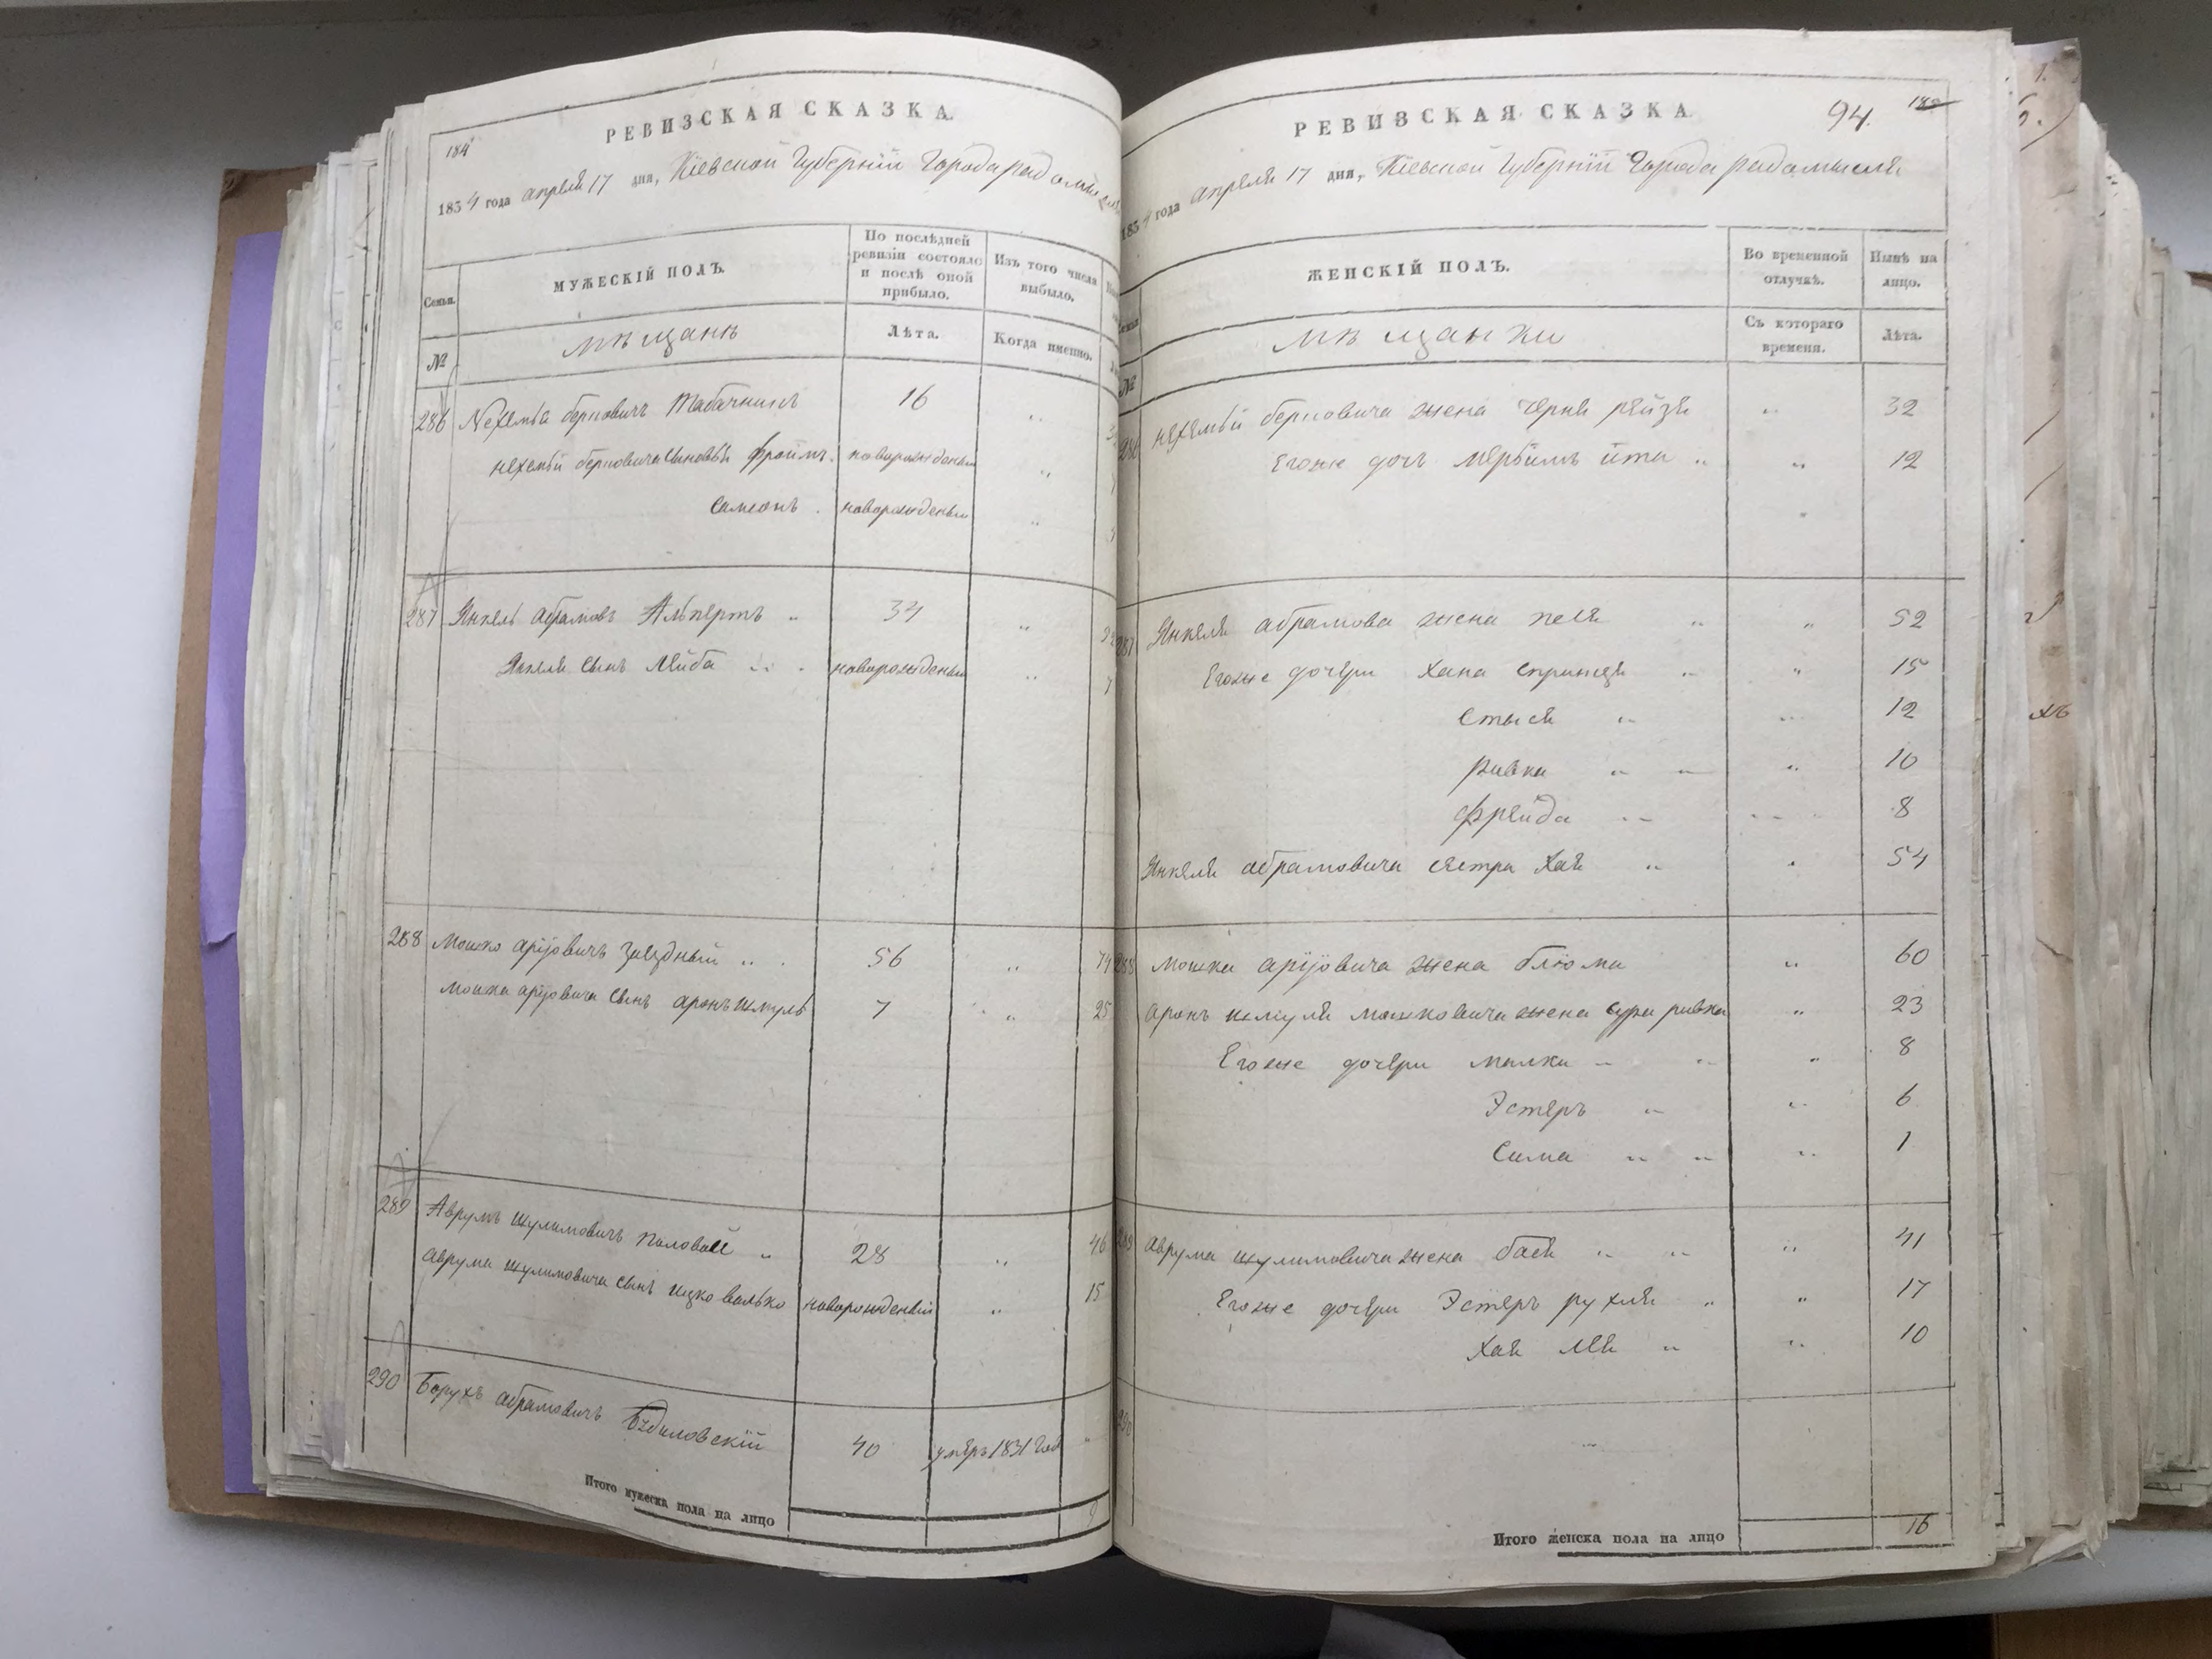 184
РЕВИЗСКАЯ СКАЗКА.
1854 года апреля 17 дня, Кіевской Губерніи Города радомысля
Семьи.
МУЖЕСКІЙ ПОЛЪ.
По послѣдней ревизіи состояло и послѣ оной прибыло.
Изъ того числа выбыло.
№
мѣщанѣ
Лѣта.
Когда именно.
286 Нехемья берковичъ Табачникъ 16 ..
нехемьи берковича сыновья Фроимъ. новорожденый ..
Самсонъ . новорожденый ..
287 Янкель абрамовъ Альпертъ .. 34 ..
Янкеля сынъ Лейба .. . новорожденый ..
288 Мошко арійовичъ Звездный .. 56 .. 74
мошка арійовича сынъ аронъ шмуль 7 .. 25
289 Аврумъ шулимовичъ Половой .. 28 .. 46
аврума шулимовича сынъ ицко волько новорожденый .. 15
290 Борухъ абрамовичъ 40 умеръ 1831 года
Итого мужеска пола на лицо 9
РЕВИЗСКАЯ СКАЗКА
94. 185
1854 года апреля 17 дня, Кіевской Губерніи Города радомысля
ЖЕНСКІЙ ПОЛЪ.
Во временной отлучкѣ.
Нынѣ на лицо.
№
мѣщанки
Съ котораго времени.
Лѣта.
286 нехемьи берковича жена черня рейзя .. 32
Егоже дочь мерьимъ ита .. .. 12
287 Янкеля абрамова жена песя .. .. 52
Егоже дочери хана спринця .. .. 15
стыся .. .. 12
ривка .. .. .. 10
фрейда .. .. 8
Янкеля абрамовича сестра хая .. . 54
288 мошка арійовича жена блюма .. 60
аронъ шмуля мошковича жена сура ривка .. 23
Егоже дочери малка .. .. .. 8
Эстеръ .. .. 6
сима .. .. .. 1
289 аврума шулимовича жена бася .. .. .. 41
Егоже дочери Эстеръ рухля .. .. 17
хая лея .. .. 10
290
Итого женска пола на лицо 16